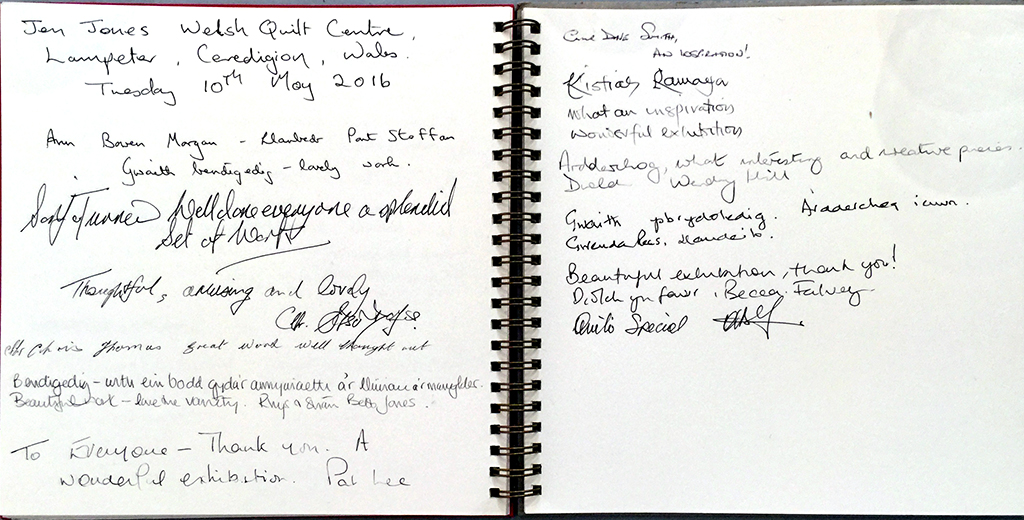 Jen Jones Welsh Quilt Centre,
Lampeter, Ceredigion, Wales.
Tuesday 10th May 2016
Ann Bowen Morgan - Llanbedr Pont Steffan
Gwaith bendigedig - lovely work.
Turner Well done everyone a splendid
Set of Work
Thoughtful, amusing and lovely
Cllr.
Cllr Chris Thomas great work well thought out
Bendigedig - wrth ein bodd gyda'r amrywiaeth a'r lliwiau a'r manylder.
Beautiful work - love the variety. Rhys Betty Jones.
To Everyone - Thank you. A
wonderful exhibition. Pat Lee
Smith,
AN INSPIRATION!
Ramaya
What an inspiration
Wonderful exhibition
Ardderchog, what interesting and creative pieces.
Wendy Hill
Gwaith ysbrydoledig. Ardderchog iawn.
Beautiful exhibition, thank you!
Diolch yn fawr, Becca Falvey
Quite Special